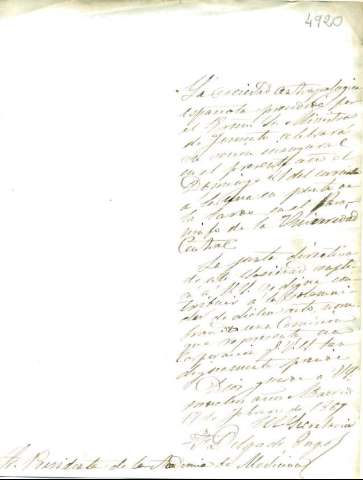 4920
La Sociedad antropologica
española presidida por
el Excmo. Sr. Ministro
de Fomento celebrará
su sesion inaugural
en el presente año el
Domingo 21 del corriente
a la una en punto de
la tarde en el Para-
ninfo de la Universidad
Central.
La junta directiva
de esta Sociedad suplica
a V. S. se digne con-
tribuir a la solemni-
dad de dicho acto, nom-
brando una Comision
que represente esa
Corporacion que V. S. tan
dignamente preside
Dios guarde a V. S.
muchos años Madrid
17 de Febrero de
El Secretario
Delgado
Sr. Presidente de la Academia de Medicina